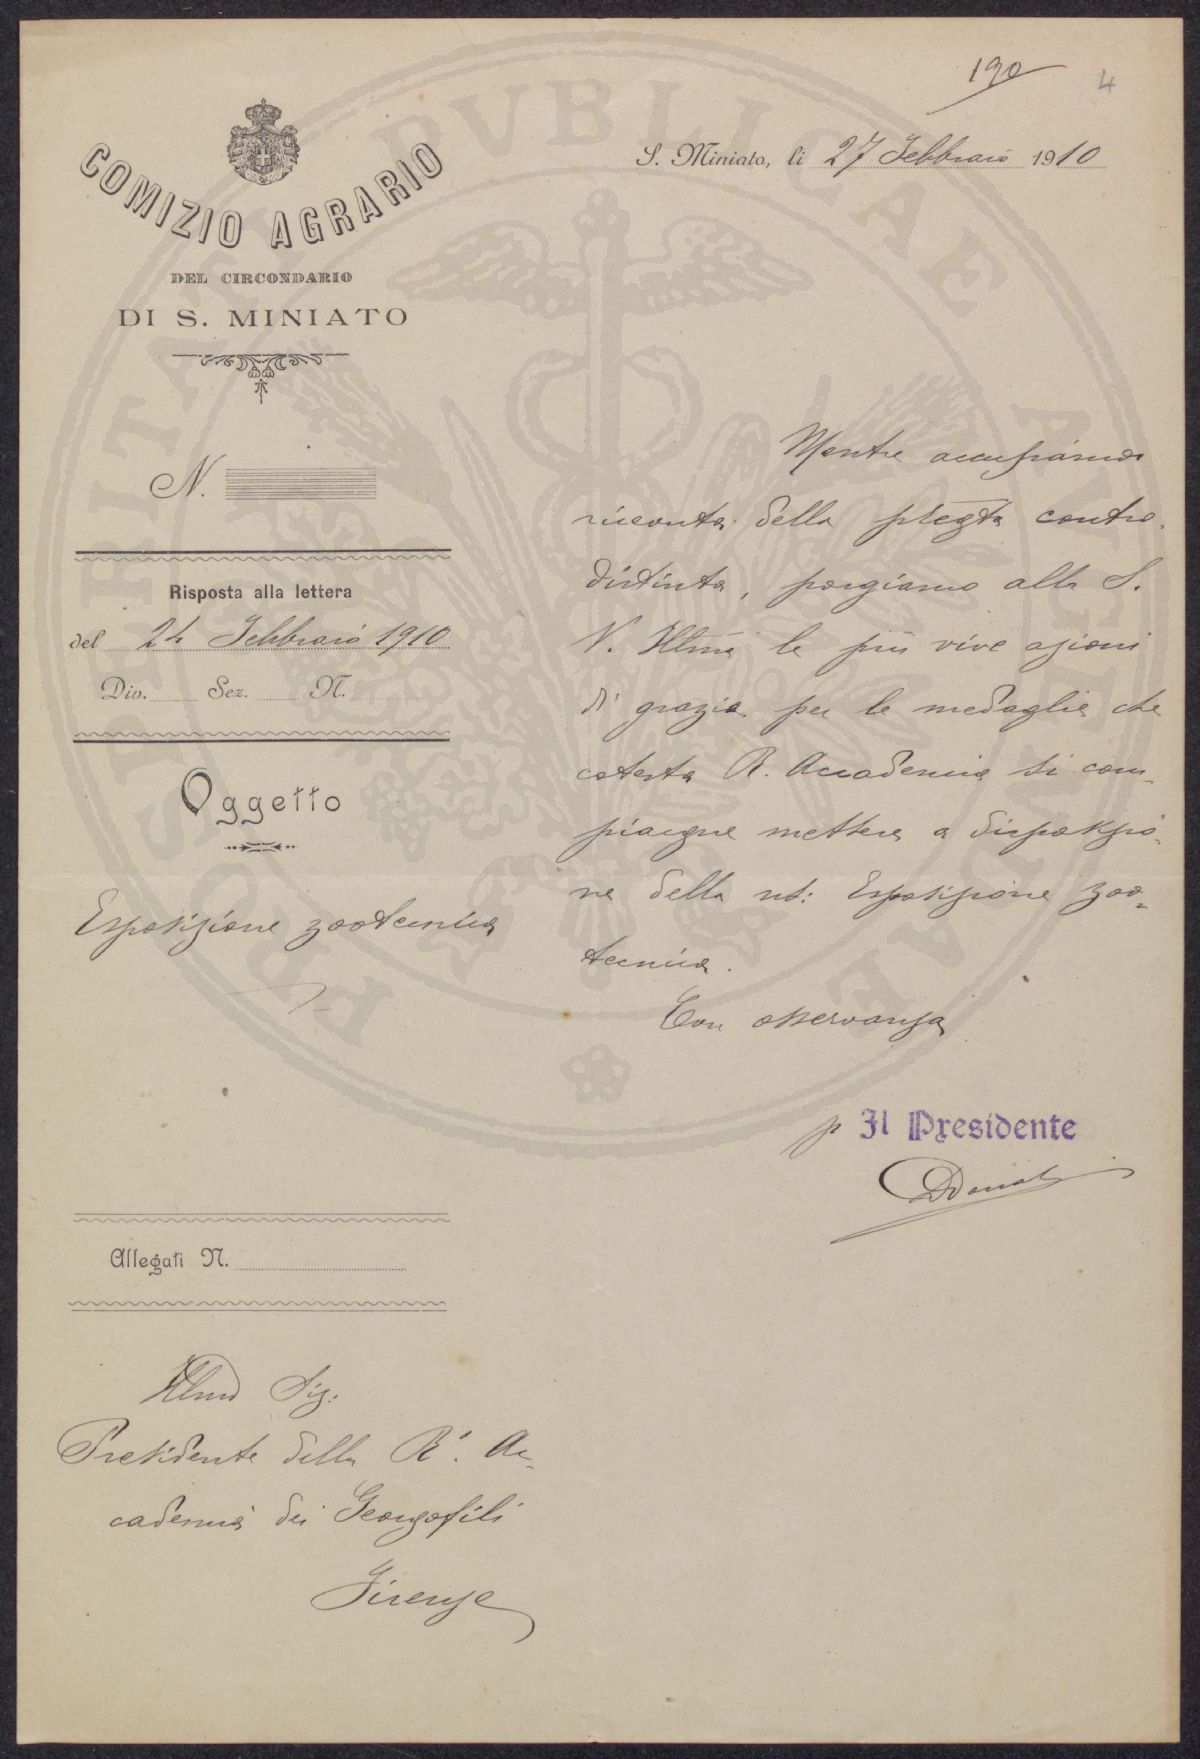 190
4
COMIZIO AGRARIO
DEL CIRCONDARIO
DI S. MINIATO
S. Miniato, li 27 Febbraio 1910
N.
Risposta alla lettera
del 24 Febbraio 1910
Div. Sez. N.
Oggetto
Esposizione zootecnica
Mentre accusiamo
ricevuta della pregta contro
distinta, porgiamo alla S.
V. Illma le più vive azioni
di grazia per le medaglie che
cotesta R. Accademia si com-
piacque mettere a disposizio-
ne della ns: Esposizione zoo-
tecnica.
Con osservanza
p Il Presidente
DDonati
Allegati N.
Illmo Sig:
Presidente della R. Ac-
cademia dei Georgofili
Firenze
PROSPERITATI PVBLICAE AVGENDAE